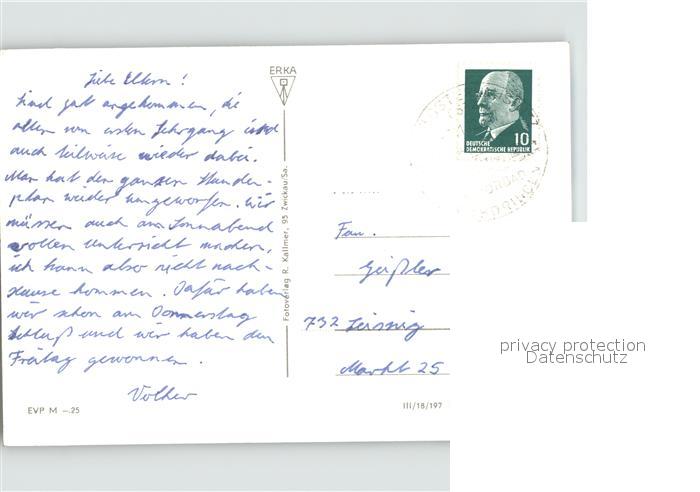 Liebe Eltern!
Sind gut angekommen, die
alten vom ersten Lehrgang sind
auch teilweise wieder dabei.
Man hat den ganzen Stunden-
plan wieder umgeworfen. Wir
müssen auch am Sonnabend
vollen Unterricht machen,
ich kann also nicht nach-
hause kommen. Dafür haben
wir schon am Donnerstag
Schluß und wir haben den
Freitag gewonnen.
Volker
EVP M –.25
ERKA
Fotoverlag R. Kallmer, 95 Zwickau/Sa.
III/18/197
DEUTSCHE
DEMOKRATISCHE REPUBLIK
10
Fam.
Geißler
732 Leisnig
Markt 25
privacy protection
Datenschutz